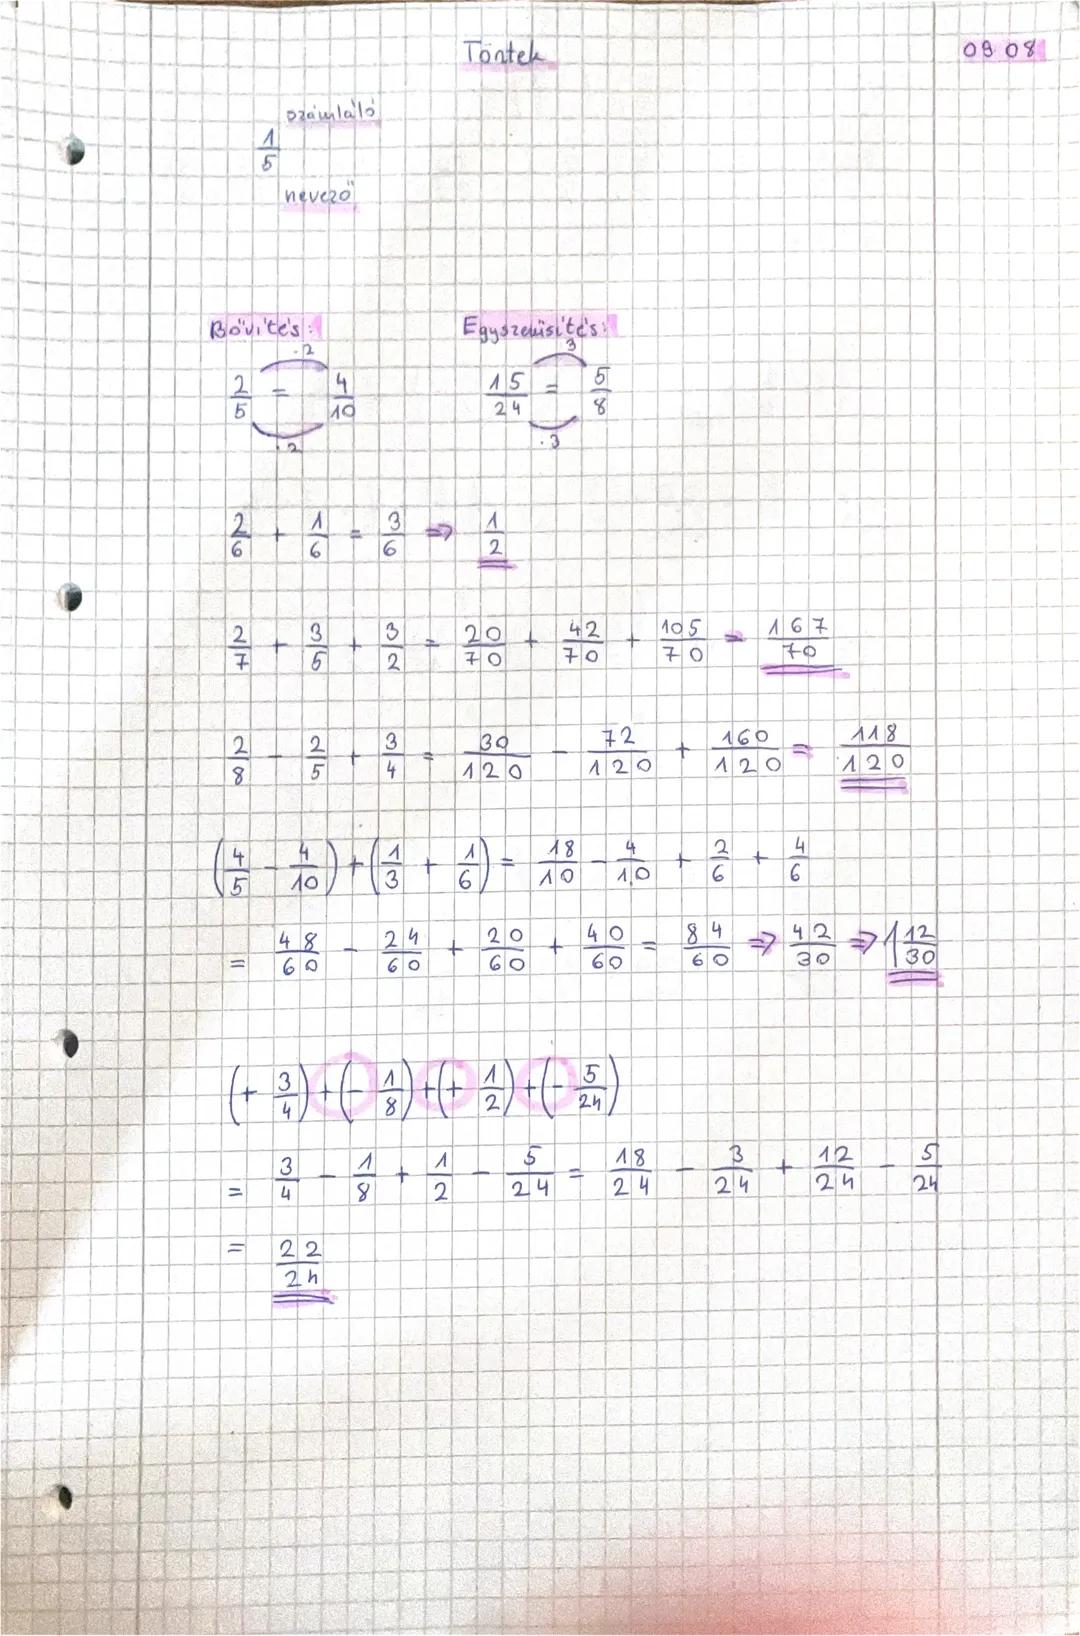 Törtek 09 08
számláló
1/5
nevező
Bővítés: Egyszerűsítés:
·2 3
2/5 = 4/10 15/24 = 5/8
·2 ·3
2/6 + 1/6 = 3/6 ⇒ 1/2
2/7 + 3/5 + 3/2 = 20/70 + 42/70 + 105/70 = 167/70
2/8 - 2/5 + 3/4 = 30/120 - 72/120 + 160/120 = 118/120
(4/5 - 4/10) + (1/3 + 1/6) = 18/10 - 4/10 + 2/6 + 4/6
= 48/60 - 24/60 + 20/60 + 40/60 = 84/60 ⇒ 42/30 ⇒ 1 12/30
(+ 3/4) + (- 1/8) + (+ 1/2) + (- 5/24)
= 3/4 - 1/8 + 1/2 - 5/24 = 18/24 - 3/24 + 12/24 - 5/24
= 22/24